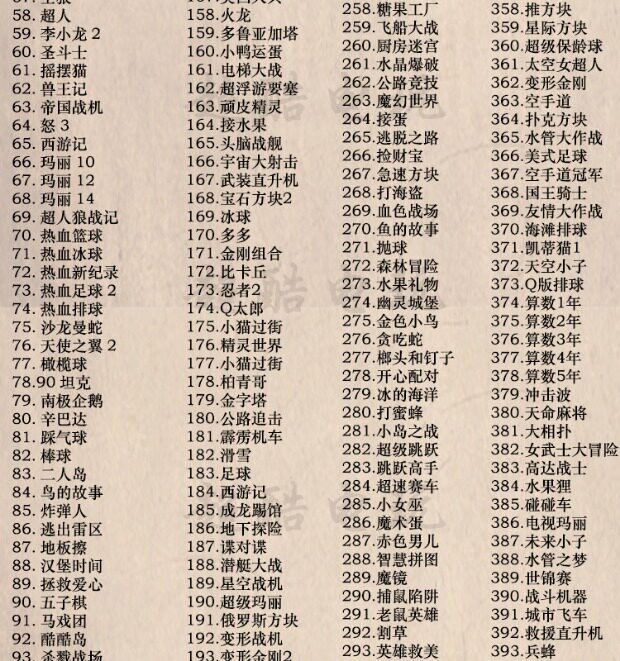 58. 超人
59. 李小龙 2
60. 圣斗士
61. 摇摆猫
62. 兽王记
63. 帝国战机
64. 怒 3
65. 西游记
66. 玛丽 10
67. 玛丽 12
68. 玛丽 14
69. 超人狼战记
70. 热血篮球
71. 热血冰球
72. 热血新纪录
73. 热血足球 2
74. 热血排球
75. 沙龙曼蛇
76. 天使之翼 2
77. 橄榄球
78.90 坦克
79. 南极企鹅
80. 辛巴达
81. 踩气球
82. 棒球
83. 二人岛
84. 鸟的故事
85. 炸弹人
86. 逃出雷区
87. 地板擦
88. 汉堡时间
89. 拯救爱心
90. 五子棋
91. 马戏团
92. 酷酷岛
93. 杀戮战场
158.火龙
159.多鲁亚加塔
160.小鸭运蛋
161.电梯大战
162.超浮游要塞
163.顽皮精灵
164.接水果
165.头脑战舰
166.宇宙大射击
167.武装直升机
168.宝石方块2
169.冰球
170.多多
171.金刚组合
172.比卡丘
173.忍者2
174.Q太郎
175.小猫过街
176.精灵世界
177.小猫过街
178.柏青哥
179.金字塔
180.公路追击
181.霹雳机车
182.滑雪
183.足球
184.西游记
185.成龙踢馆
186.地下探险
187.谍对谍
188.潜艇大战
189.星空战机
190.超级玛丽
191.俄罗斯方块
192.变形战机
193.变形金刚2
258.糖果工厂
259.飞船大战
260.厨房迷宫
261.水晶爆破
262.公路竞技
263.魔幻世界
264.接蛋
265.逃脱之路
266.捡财宝
267.急速方块
268.打海盗
269.血色战场
270.鱼的故事
271.抛球
272.森林冒险
273.水果礼物
274.幽灵城堡
275.金色小鸟
276.贪吃蛇
277.榔头和钉子
278.开心配对
279.冰的海洋
280.打蜜蜂
281.小岛之战
282.超级跳跃
283.跳跃高手
284.超速赛车
285.小女巫
286.魔术蛋
287.赤色男儿
288.智慧拼图
289.魔镜
290.捕鼠陷阱
291.老鼠英雄
292.割草
293.英雄救美
358.推方块
359.星际方块
360.超级保龄球
361.太空女超人
362.变形金刚
363.空手道
364.扑克方块
365.水管大作战
366.美式足球
367.空手道冠军
368.国王骑士
369.友情大作战
370.海滩排球
371.凯蒂猫1
372.天空小子
373.Q版排球
374.算数1年
375.算数2年
376.算数3年
377.算数4年
378.算数5年
379.冲击波
380.天命麻将
381.大相扑
382.女武士大冒险
383.高达战士
384.水果狸
385.碰碰车
386.电视玛丽
387.未来小子
388.水管之梦
389.世锦赛
390.战斗机器
391.城市飞车
392.救援直升机
393.兵蜂